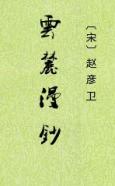 雲麓漫鈔
〔宋〕赵彦卫